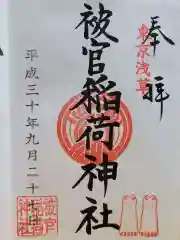 奉拝
東京浅草
被官稲荷神社
平成三十年九月二十七日
被官稲荷神社